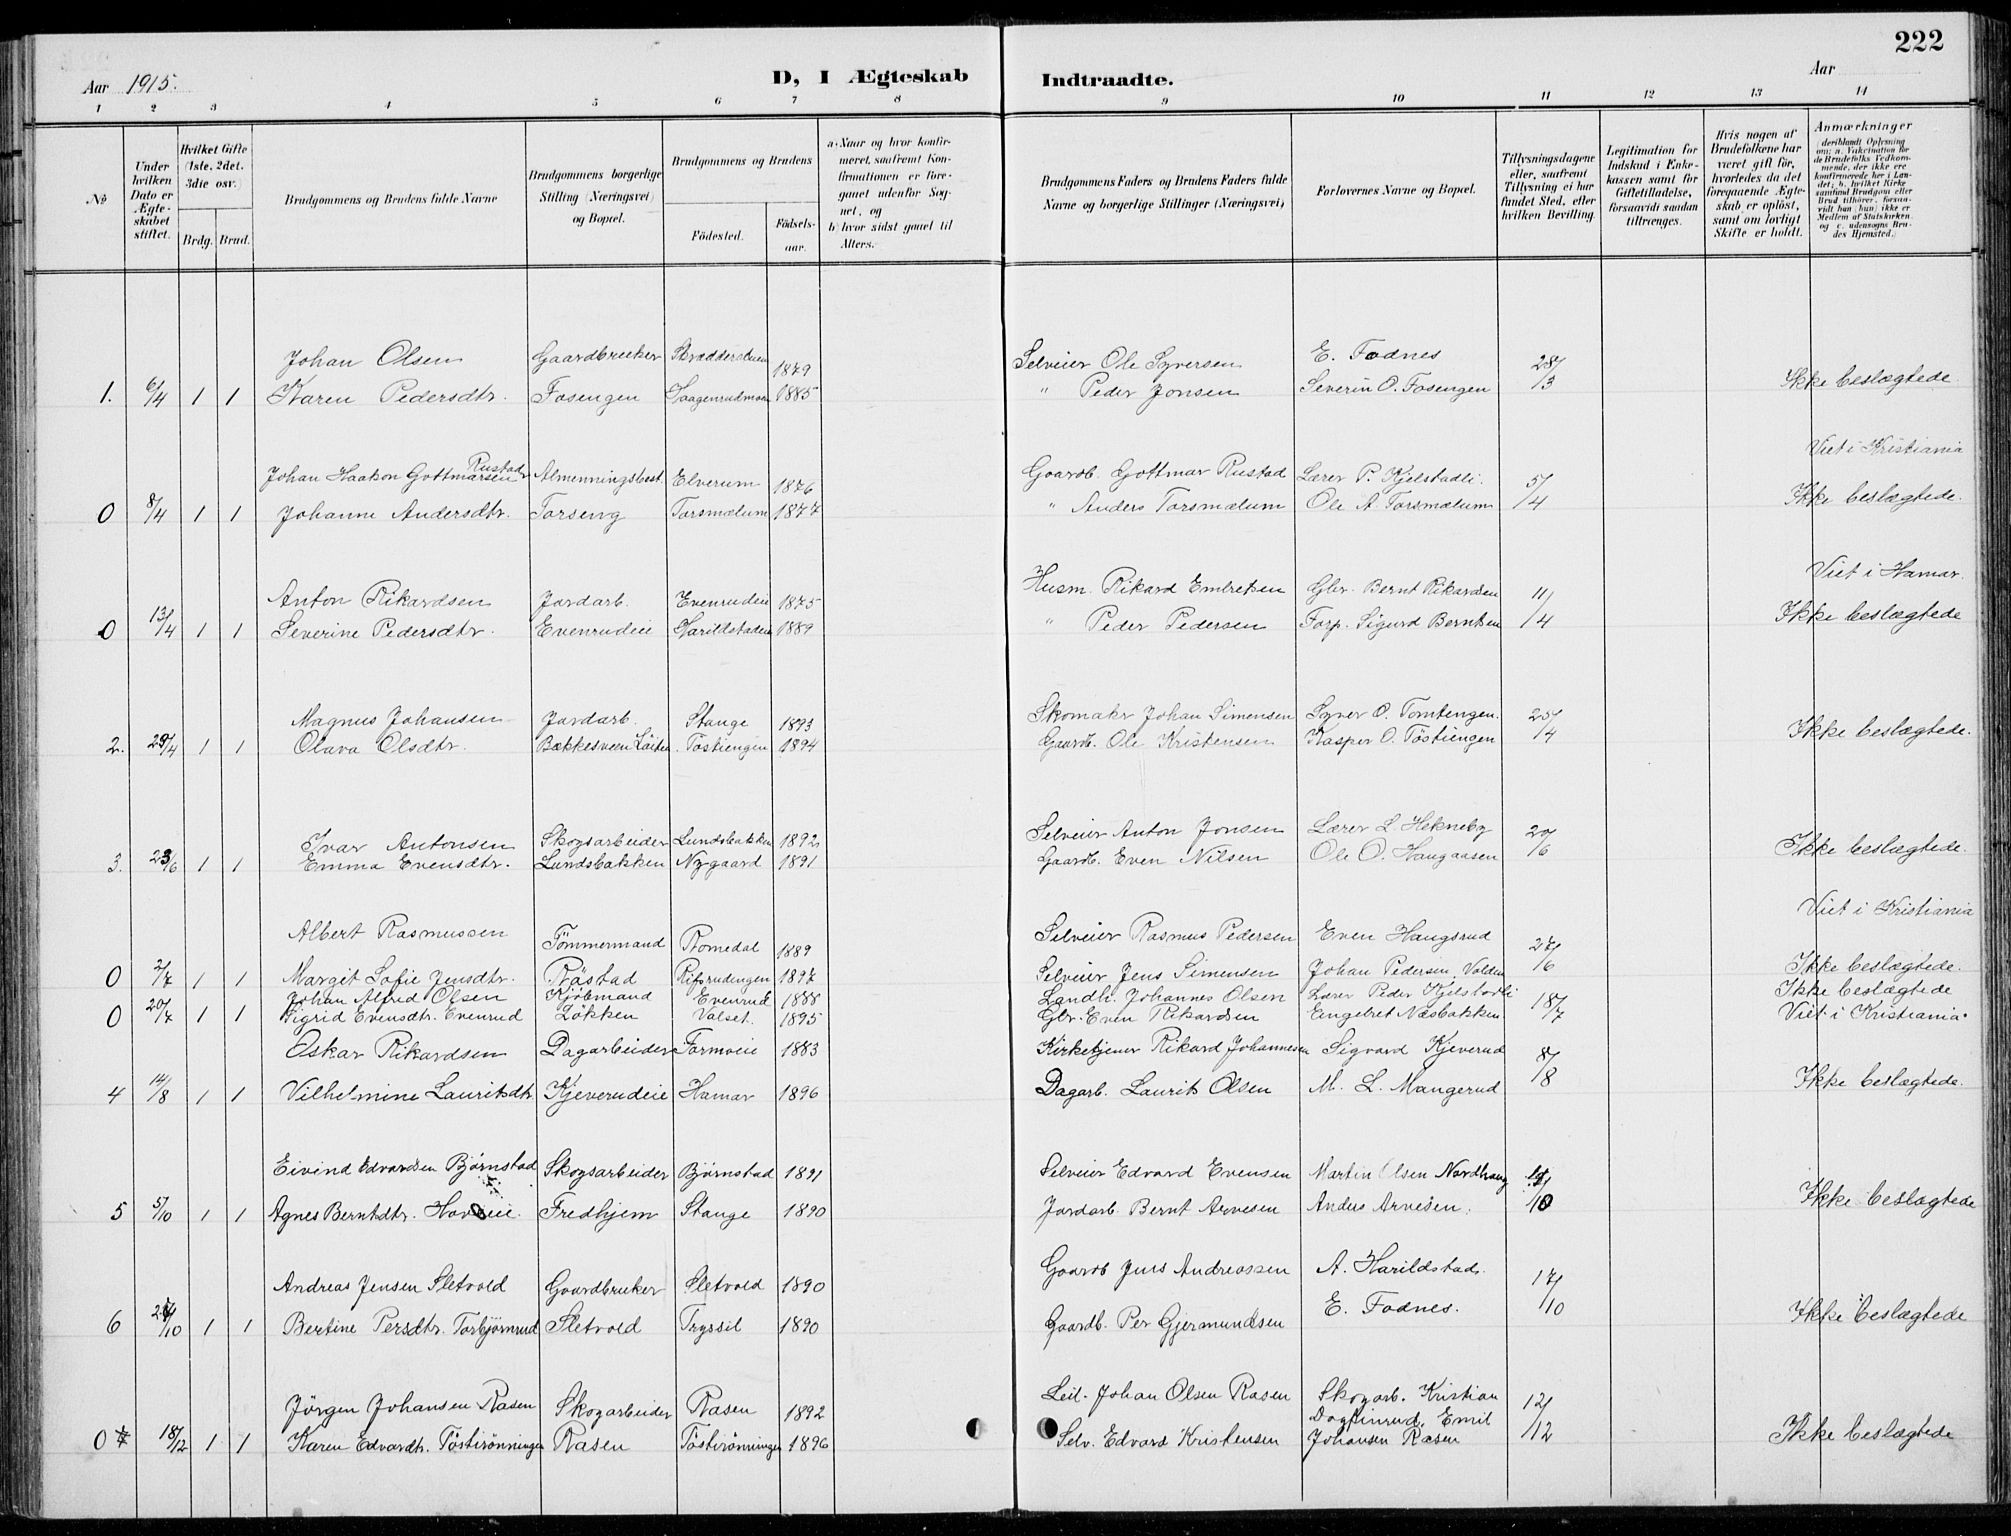 222
Aar 1915.
D, I Ægteskab Indtraadte.
Aar
1 2 3 4 5 6 7 8 9 10 11 12 13 14
No
Under hvilken Dato er Ægteskabet stiftet.
Hvilket Gifte (1ste, 2det. 3die osv.)
Brdg. Brud.
Brudgommens og Brudens fulde Navne
Brudgommens borgerlige Stilling (Næringsvei) og Bopæl.
Brudgommens og Brudens
Födested. Födselsaar.
a) Naar og hvor konfirmeret, saafremt Konfirmationen er foregaaet udenfor Sognet, og
b) hvor sidst gaaet til Alters.
Brudgommens Faders og Brudens Faders fulde Navne og borgerlige Stillinger (Næringsvei)
Forlovernes Navne og Bopæl.
Tillysningsdagene eller, saafremt Tillysning ei har fundet Sted, efter hvilken Bevilling.
Legitimation for Indskud i Enkekassen samt for Giftetilladelse, forsaavidt saadan tiltrænges.
Hvis nogen af Brudefolkene har været gift för, hvorledes da det foregaaende Ægteskab er oplöst, samt om lovligt Skifte er holdt.
Anmærkninger (deriblandt Oplysning om: a. Vakcination for de Brudefolks Vedkommende, der ikke ere konfirmerede her i Landet; b. hvilket Kirkesamfund Brudgom eller Brud tilhörer, forsaavidt han (hun) ikke er Medlem af Statskirken, og c. udensogns Brudes Hjemsted.)
Johan Olsen Gaardbruker 1879 Selveier Ole Syversen E. Fodnes 28/3
1. 6/4 1 1 Karen Pedersdtr. Fosengen Haagenrudmoen 1885 " Peder Jonsen Severin O. Fosengen Ikke beslægtede
Viet i Kristiania
Johan Haakon Gottmarsen Rustad Almenningsbest. Elverum 1876 Gaardb. Gottmar Rustad Lærer P. Kjelstadli 5/4
0 8/4 1 1 Johanne Andersdtr. Torseng Torsmælum 1877 " Anders Torsmælum Ole A. Torsmælum Ikke beslægtede.
Viet i Hamar.
Anton Rikardsen Jordarb. Evenrudeie 1875 Husm. Rikard Embretsen Gbr. Bernt Rikardsen 11/4
0 13/4 1 1 Severine Pedersdtr. Evenrudeie Harildstadeie 1889 " Peder Pedersen Forp. Sigurd Berntsen Ikke beslægtede
Magnus Johansen Jordarb. Stange 1893 Skomaker Johan Simensen Syver O. Tomtengen. 25/4
2. 29/4 1 1 Olava Olsdtr. Bækkesveen Löiten Töstiengen 1894 Gaardb. Ole Kristensen Kasper O. Töstiengen Ikke beslægtede.
Ivar Antonsen Skogsarbeider Lundsbakken 1892 Selveier Anton Jonsen Lærer L. Hekneby 20/6
3. 23/6 1 1 Emma Evensdtr. Lundsbakken Nygaard 1891 Gaardb. Even Nilsen Ole O. Haugaasen Ikke beslægtede.
Viet i Kristiania
Albert Rasmussen Tömmermand Romedal 1889 Selveier Rasmus Pedersen Even Haugsrud 27/6
0 2/7 1 1 Margit Sofie Jensdtr. Röstad Rifsrudengen 1897 Selveier Jens Simensen Johan Pedersen Volden Ikke beslægtede.
Johan Alfred Olsen Kjöbmand Evenrud 1888 Landh. Johannes Olsen Lærer Peder Kjelstadli Ikke beslægtede
0 20/7 1 1 Sigrid Evensdtr. Evenrud Lökken Valset. 1895 Gbr. Even Rikardsen Engebret Næsbakken 18/7 Viet i Kristiania.
Oskar Rikardsen Dagarbeider Formoeie 1883 Kirketjener Rikard Johannesen Sigvard Kjeverud 8/8
4 14/8 1 1 Vilhelmine Lauritsdtr. Kjeverudeie Hamar 1896 Dagarb. Laurits Olsen M. L. Mangerud Ikke beslægtede.
Eivind Edvardsen Björnstad Skogsarbeider Björnstad 1891 Selveier Edvard Evensen Martin Olsen Nordhaug
5 5/10 1 1 Agnes Berntsdtr. Fredhjem Stange 1890 Jordarb. Bernt Arvesen Anders Arvesen Ikke beslægtede
Andreas Jensen Sletvold Gaardbruker Sletvold 1890 Gaardb Jens Andreassen A. Harildstad. 17/10
6 1 1 Bertine Persdtr. Torbjörnrud Sletvold Tryssil 1890 Gaardb. Per Gjermundsen E. Fodnes. Ikke beslægtede
Jörgen Johansen Rasen Skogarbeider Rasen 1892 Leil. Johan Olsen Rasen Skogarb. Kristian Dagfinrud, Emil 12/12
0 18/12 1 1 Karen Edvardtr. Töstirönningen Rasen Töstirönningen 1896 Selv. Edvard Kristensen Johansen Rasen Ikke beslægtede